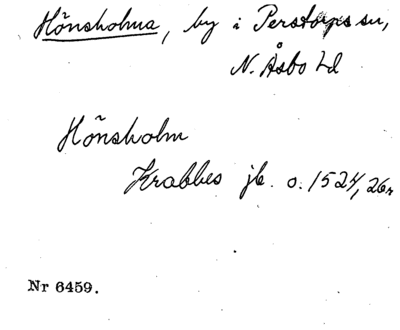 Hönsholma, by i Perstorps sn,
N. Åsbo hd
Hönsholm
Krabbes jb. o. 1524, 26r
Nr 6459.